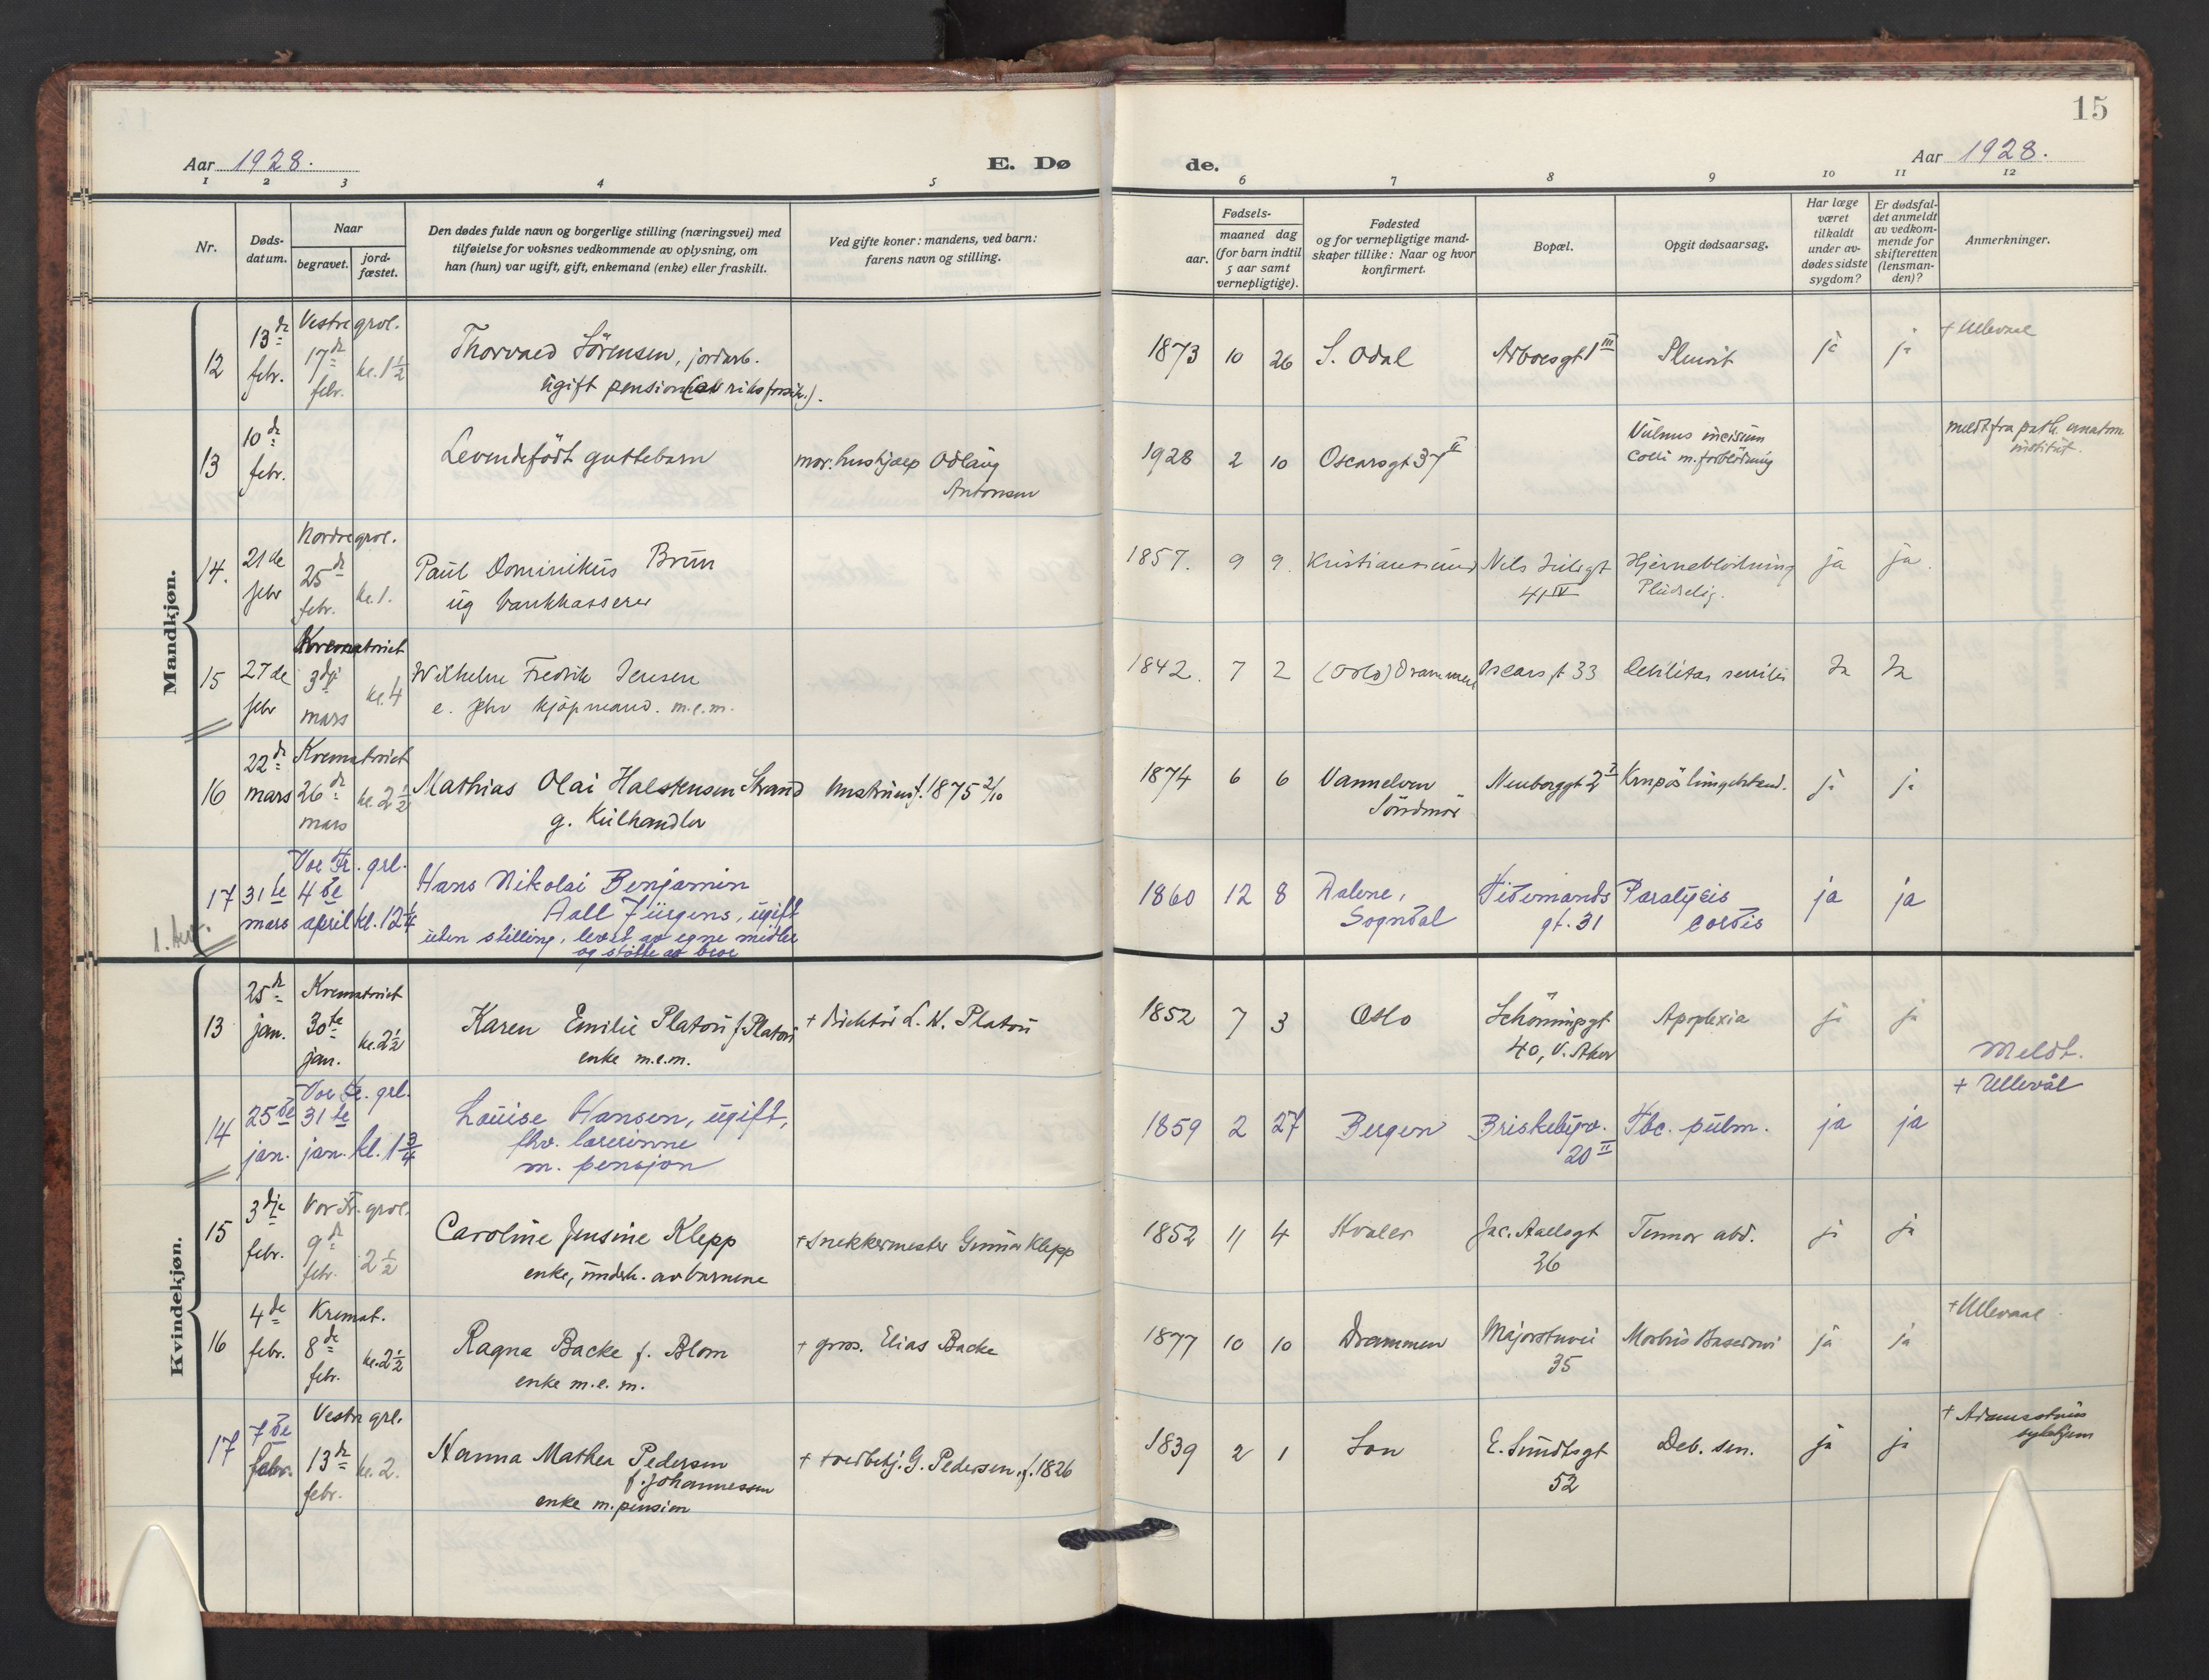 15
Aar 1928.
E. Dø
de.
Aar 1928.
1 2 3 4 5 6 7 8 9 10 11 12
Nr.
Døds-
datum.
Naar
begravet.
jord-
fæstet.
Den dødes fulde navn og borgerlige stilling (næringsvei) med
tilføielse for voksnes vedkommende av oplysning, om
han (hun) var ugift, gift, enkemand (enke) eller fraskilt.
Ved gifte koner: mandens, ved barn:
farens navn og stilling.
Fødsels-
aar.
maaned dag
(for barn indtil
5 aar samt
vernepligtige).
Fødested
og for vernepligtige mand-
skaper tillike: Naar og hvor
konfirmert.
Bopæl.
Opgit dødsaarsag.
Har læge
været
tilkaldt
under av-
dødes sidste
sygdom?
Er dødsfal-
det anmeldt
av vedkom-
mende for
skifteretten
(lensman-
den)?
Anmerkninger.
Mandkjøn.
12
13de
febr.
Vestre grvl.
17de
febr.
kl. 1½
Thorvald Sörensen, jordarb.
ugift pension (av riksforsik.).
1873 10 26
S. Odal
Arboesgt 1 III
Pleurit
ja ja
+ Ullevaal
13
10de
febr.
Levendefödt guttebarn
mor: hushjælp Odlaug
Antonsen
1928 2 10
Oscarsgt 37 II
Vulnus incisum
colli m. forblödning
meldt fra path. anatom
institut.
14.
21de
febr
Nordre grvl.
25de
febr.
kl. 1.
Paul Dominikus Brun
ug bankkasserer
1857. 9 9.
Kristiansund
Nils Juelsgt
41 IV
Hjerneblödning
Pludselig.
ja ja.
15
27de
febr
Krematoriet
3dje
mars
kl. 4
Wilhelm Fredrik Jensen
e. fhv kjöpmand. m.e.m.
1842. 7 2
(Oslo) Drammen
Oscarsgt 33
Debilitas senilis
Ja Ja
16
22de
mars
Krematoriet
26de
mars
kl. 2½
Mathias Olai Halstensen Strand
g. Kulhandler
hustru f. 1875 2/10
1874 6 6
Vannelven
Söndmör
Neuberggt 2 I
Krupös lungebetænd.
ja ja
17
31te
mars
Vor Fr. grl.
4de
april
kl. 12¼
Hans Nikolai Benjamin
Aall Jürgens, ugift
uten stilling, levet av egne midler
og stötte av bror
1860 12 8
Aalene,
Sogndal
Tidemands
gt. 31
Paralysis
cordis
ja ja
1. kv.
Kvindekjøn.
13
25de
jan.
Krematoriet
30te
jan.
kl. 2½
Karen Emilie Platou f. Platou
enke m.e.m.
+ direktör L. N. Platou
1852 7 3
Oslo
Schönningsgt
40, V. Aker
Apoplexia
ja ja
Meldt.
14
25de
jan.
Vor Fr. grl.
31te
jan.
kl. 1¾
Louise Hansen, ugift,
fhv. lærerinne
m. pensjon
1859 2 27
Bergen
Briskebyv.
20 II
Tbc. pulm.
ja ja
+ Ullevål
15
3dje
febr.
Vor Fr. grvl.
9de
febr.
2½
Caroline Jensine Klepp
enke, underh. av barnene
+ Snekkermester Gunnar Klepp
1852 11 4
Hvaler
Jac. Aallsgt
26
Tumor abd.
ja ja
16
4de
febr.
Kremat.
8de
febr.
kl. 2½
Ragna Backe f. Blom
enke m.e.m.
+ gross. Elias Backe
1877 10 10
Drammen
Majorstuvei
35
Morbus Basedowi
ja ja
+ Ullevaal
17
7de
febr.
Vestre grl.
13de
febr.
kl. 2.
Hanna Mathea Pedersen
f. Johannessen
enke m. pension
+ G. Pedersen, f. 1826
1839 2 1
Son
E. Sundtsgt
52
Deb. sen.
ja ja
+ Adamsstuens
sykehjem